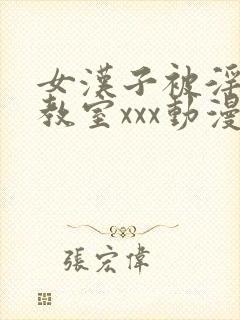 女漢子被淫
教室xxx動漫
張宏偉